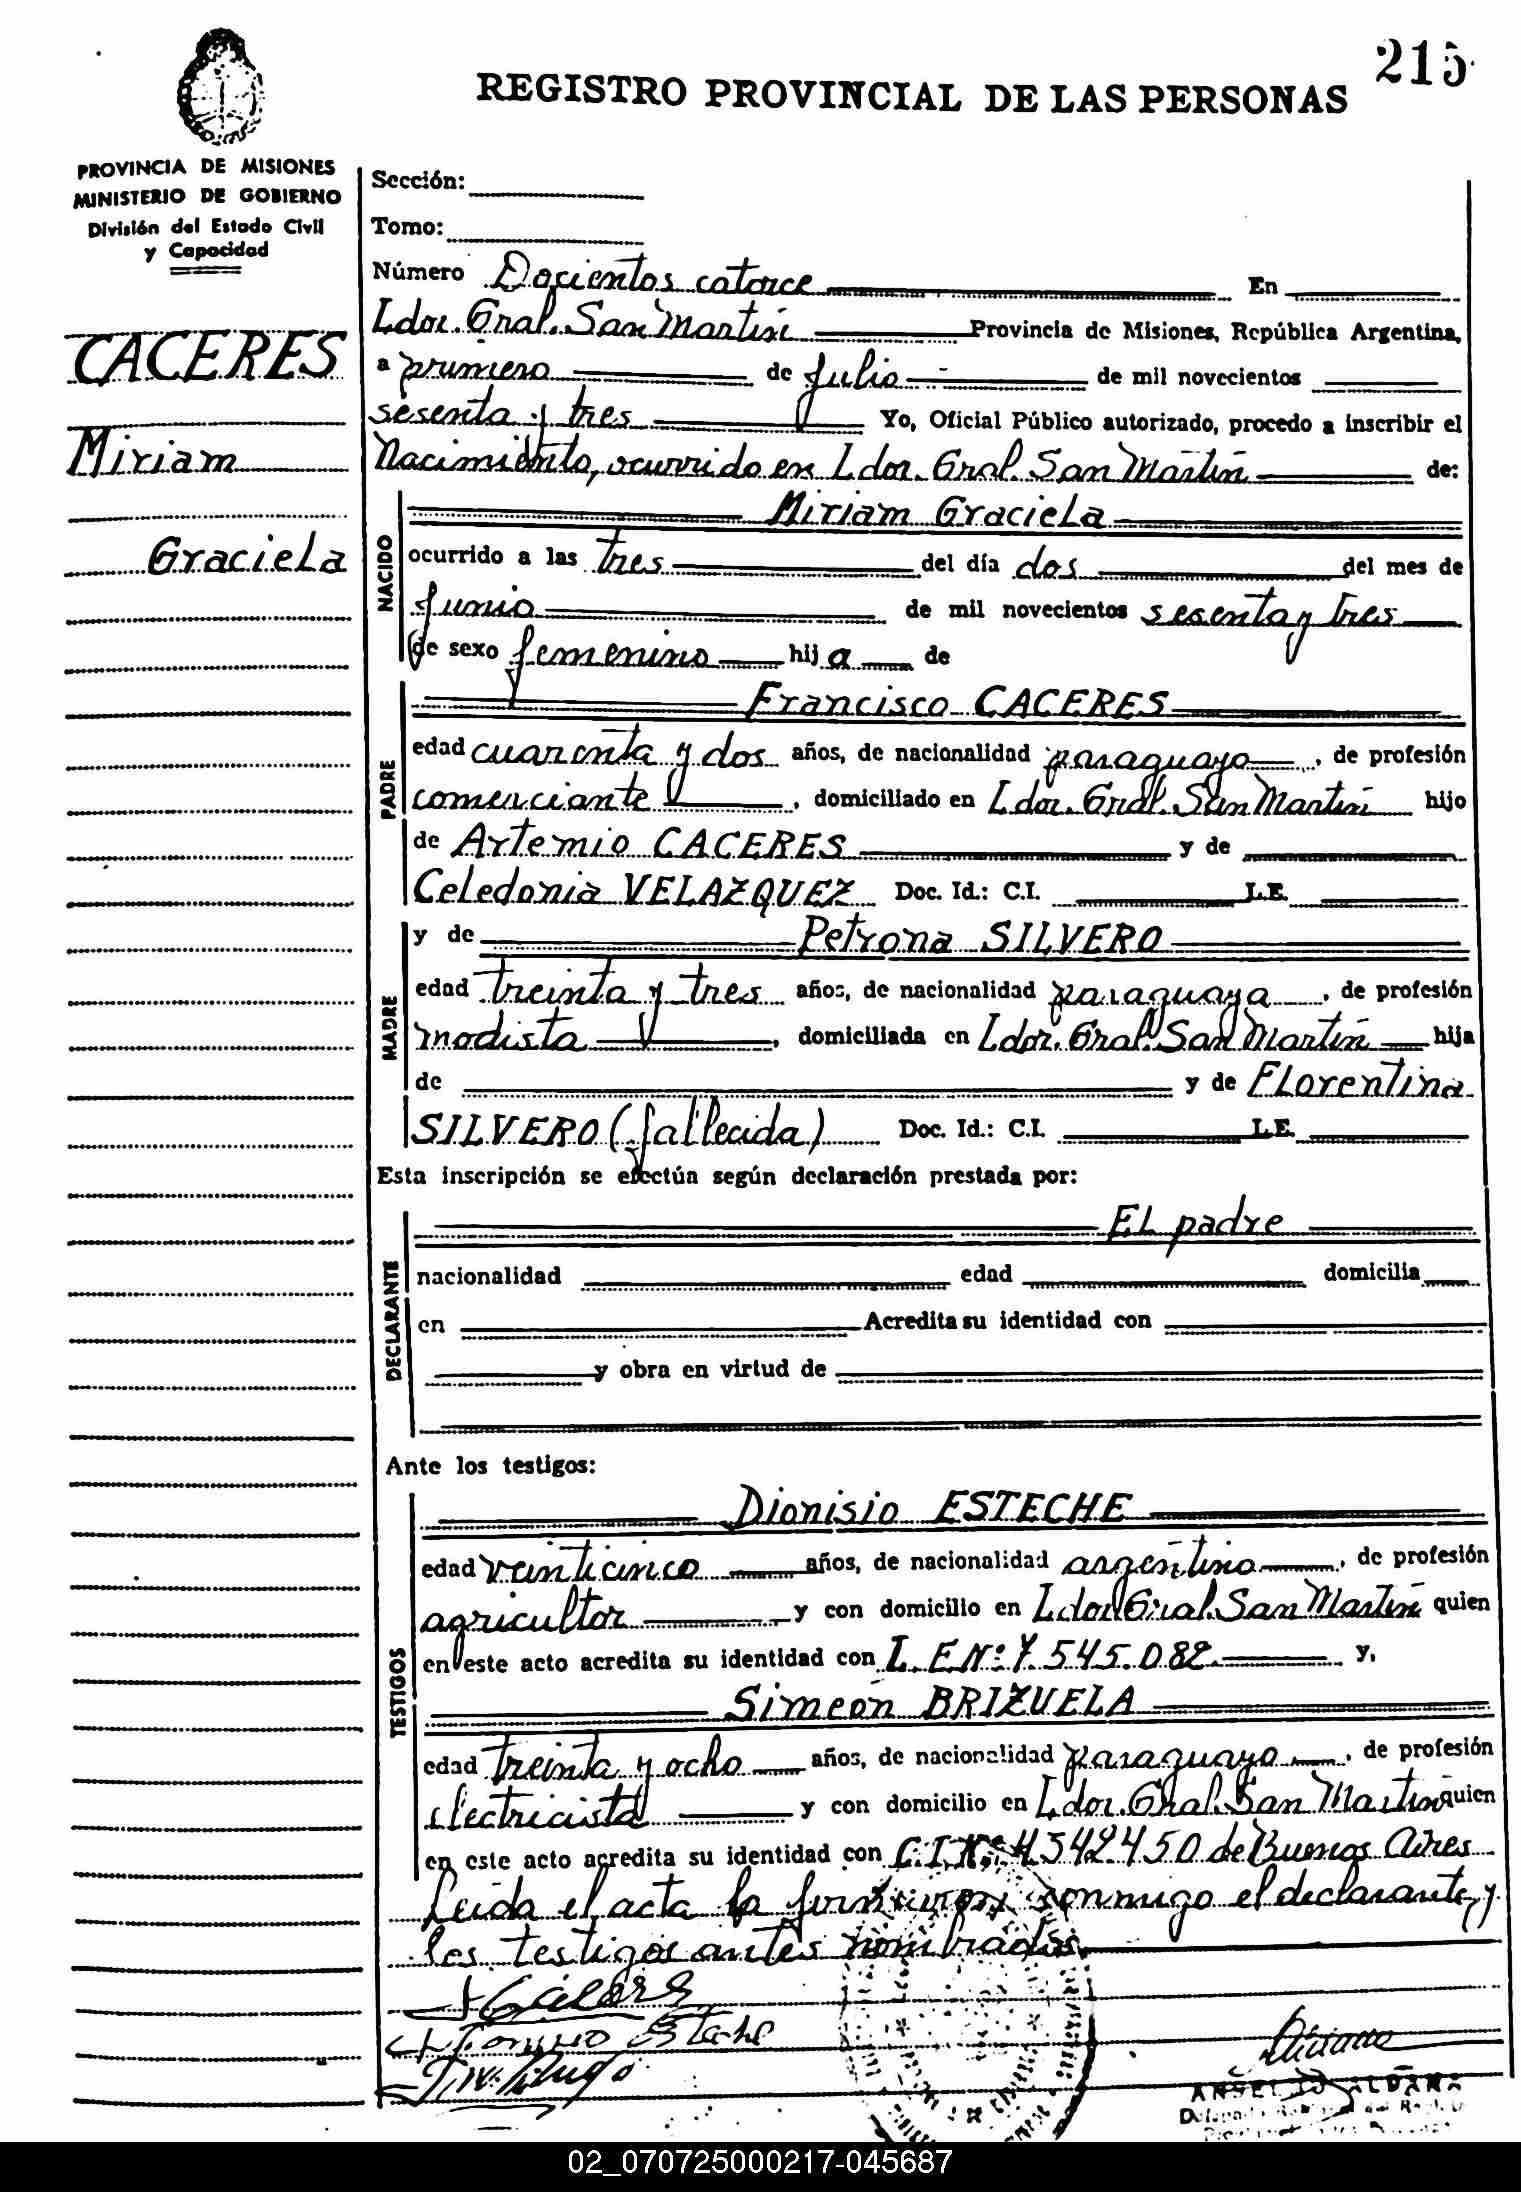 215
REGISTRO PROVINCIAL DE LAS PERSONAS
PROVINCIA DE MISIONES
MINISTERIO DE GOBIERNO
División del Estado Civil
y Capacidad
CACERES
Miriam
Graciela
Sección:
Tomo:
Número Docientos catorce En
Ldor. Gral. San Martín Provincia de Misiones, República Argentina,
a primero de Julio de mil novecientos
sesenta y tres Yo, Oficial Público autorizado, procedo a inscribir el
Nacimiento, ocurrido en Ldor. Gral. San Martín de:
NACIDO
Miriam Graciela
ocurrido a las tres del día dos del mes de
Junio de mil novecientos sesenta y tres
de sexo femenino hija de
PADRE
Francisco CACERES
edad cuarenta y dos años, de nacionalidad paraguayo, de profesión
comerciante, domiciliado en Ldor. Gral. San Martín hijo
de Artemio CACERES y de
Celedonia VELAZQUEZ Doc. Id.: C.I. L.E.
MADRE
y de Petrona SILVERO
edad treinta y tres años, de nacionalidad paraguaya, de profesión
modista, domiciliada en Ldor. Gral. San Martín hija
de y de Florentina
SILVERO (fallecida) Doc. Id.: C.I. L.E.
Esta inscripción se efectúa según declaración prestada por:
DECLARANTE
El padre
nacionalidad edad domicilia
en Acredita su identidad con
y obra en virtud de
Ante los testigos:
TESTIGOS
Dionisio ESTECHE
edad veinticinco años, de nacionalidad argentino, de profesión
agricultor y con domicilio en Ldor. Gral. San Martín quien
en este acto acredita su identidad con L.E Nº: 7.545.082. y,
Simeón BRIZUELA
edad treinta y ocho años, de nacionalidad paraguayo, de profesión
electricista y con domicilio en Ldor. Gral. San Martín quien
en este acto acredita su identidad con C.I Nº: 4.542.450 de Buenos Aires
Leida el acta la firmaron conmigo el declarante y
los testigos antes nombrados.
02_070725000217-045687